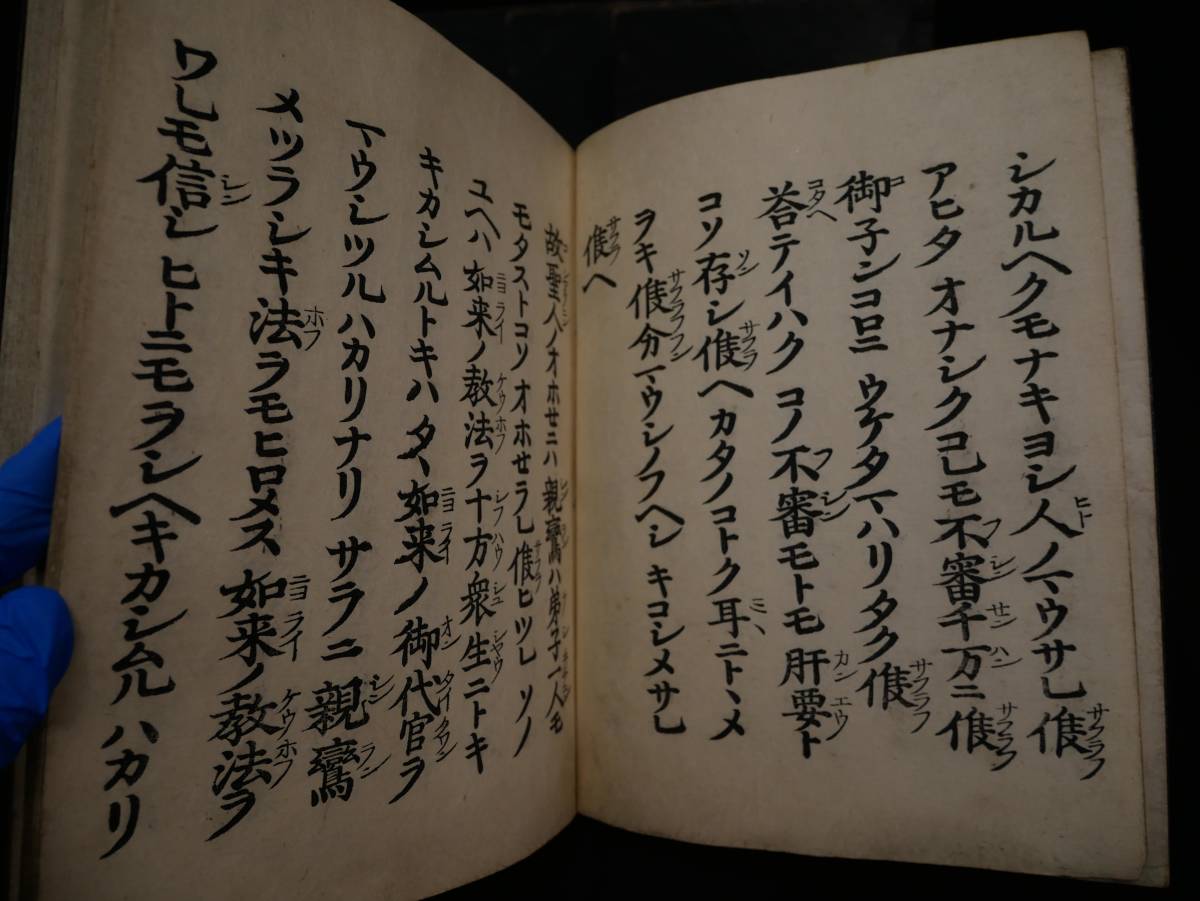 シカルヘクモナキヨシ人ノマウサレ候
アヒタ オナシクコレモ不審千万ニ候
御子ンコロニ ウケタマハリタク候
荅テイハク コノ不審モトモ肝要ト
コソ存シ候ヘ カタノコトク耳ニトヽメ
ヲキ候分マウシノフヘシ キコシメサレ
候ヘ
故聖人ノオホセニハ 親鸞ハ弟子一人モ
モタストコソ オホセラレ候ヒツレ ソノ
ユヘハ 如来ノ教法ヲ十方衆生ニトキ
キカシムルトキハ タヽ如来ノ御代官ヲ
マウシツルハカリナリ サラニ親鸞
メツラシキ法ヲモヒロメス 如来ノ教法ヲ
ワレモ信シ ヒトニモヲシヘキカシムルハカリ